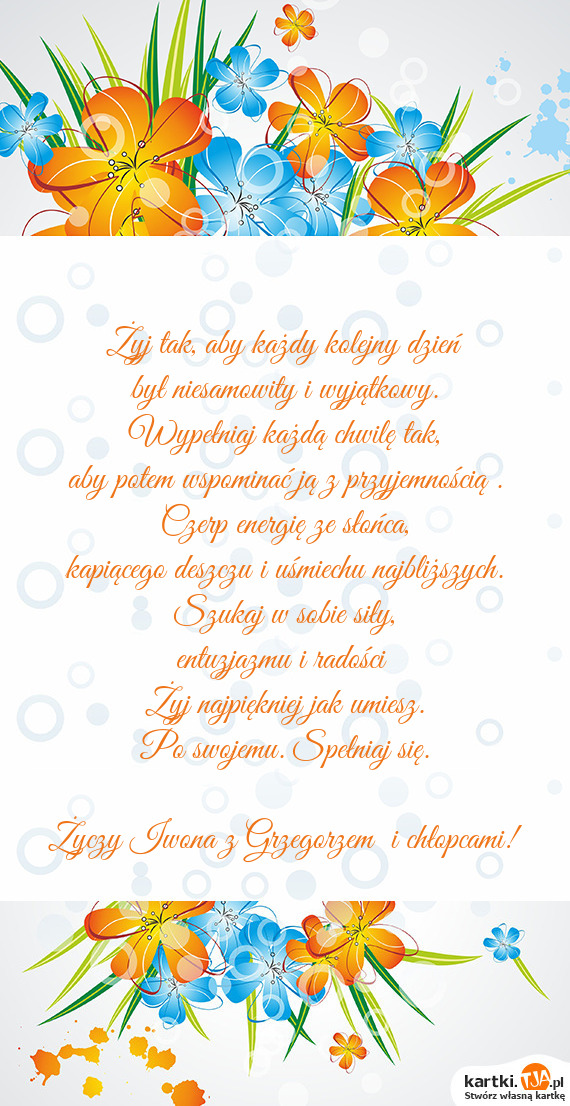 Żyj tak, aby każdy kolejny dzień
był niesamowity i wyjątkowy.
Wypełniaj każdą chwilę tak,
aby potem wspominać ją z przyjemnością .
Czerp energię ze słońca,
kapiącego deszczu i uśmiechu najbliższych.
Szukaj w sobie siły,
entuzjazmu i radości
Żyj najpiękniej jak umiesz.
Po swojemu. Spełniaj się.
Życzy Iwona z Grzegorzem i chłopcami!
kartki.TJA.pl
Stwórz własną kartkę